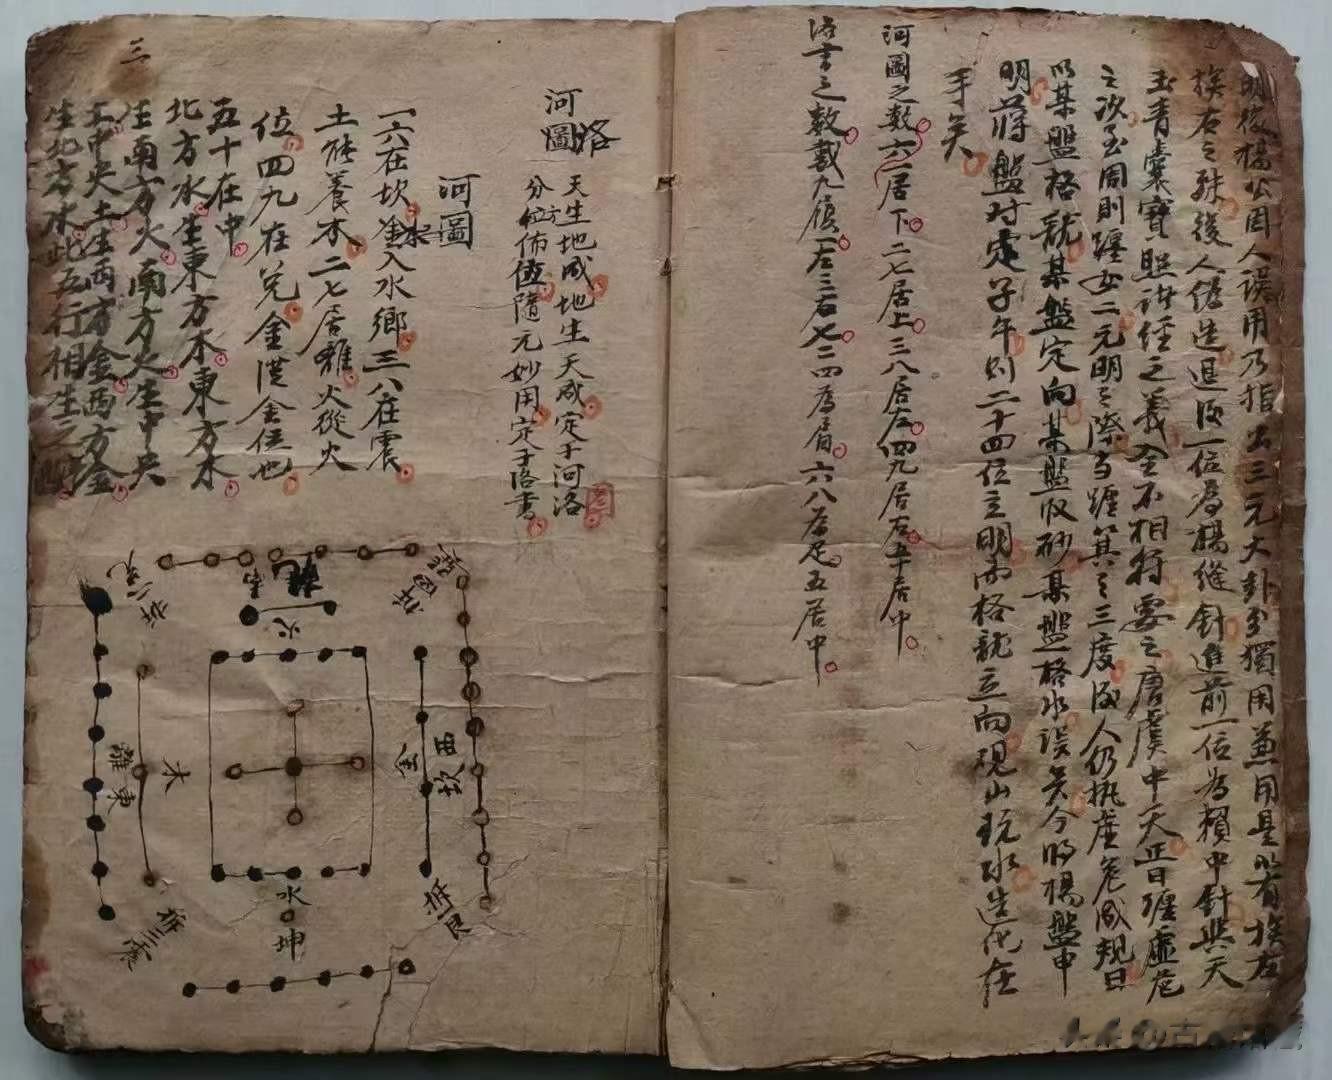 明後楊公因人誤用乃指出三元大卦至獨用兼用是以有挨左
挨右之殊後人僞造退後一位為楊縫針進前一位為賴中針與天
玉青囊寶照諸經之義全不相符要之唐虞中天正日躔虛危
之次至周則躔女二元明之際当躔箕之三度後人仍执虛危咸規曰
以某盤格龍某盤定向某盤收砂某盤格水误矣今明楊盤申
明蔣盤对定子午则二十四位立明而格龍立向現山玩水造化在
手矣
河圖之数六一居下二七居上三八居左四九居右五十居中
洛書之數戴九履一左三右七二四為肩六八為足五居中
河洛圖
天生地成地生天成定于河洛
分方位佈伍隨元妙用定于洛書
河圖
一六在坎金水入水鄉三八在震
土能養木二七居離火從火
位四九在兌金從金位也
五十在中
北方水生東方木東方木
生南方火南方火生中央
土中央土生西方金西方金
生北方水此五行相生之
三
乾
南
火
兌
木
東
離
震
金
西
坎
艮
水
坤